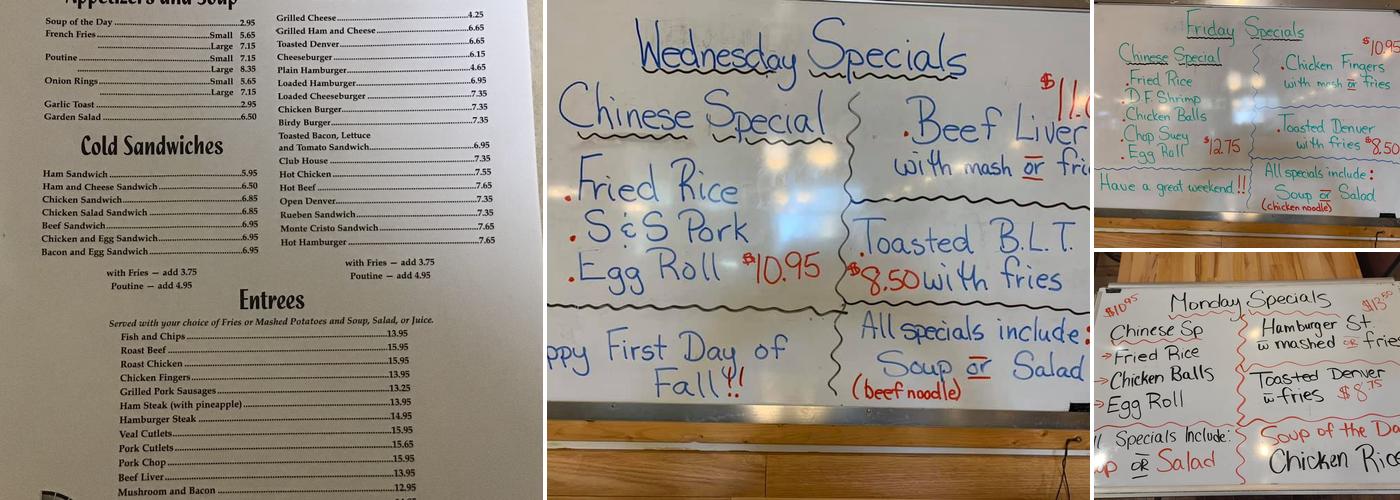 Appetizers and Soup
Soup of the Day 2.95
French Fries Small 5.65
Large 7.15
Poutine Small 7.15
Large 8.35
Onion Rings Small 5.65
Large 7.15
Garlic Toast 2.95
Garden Salad 6.50
Cold Sandwiches
Ham Sandwich 5.95
Ham and Cheese Sandwich 6.50
Chicken Sandwich 6.85
Chicken Salad Sandwich 6.85
Beef Sandwich 6.95
Chicken and Egg Sandwich 6.95
Bacon and Egg Sandwich 6.95
with Fries — add 3.75
Poutine — add 4.95
Grilled Cheese 4.25
Grilled Ham and Cheese 6.65
Toasted Denver 6.65
Cheeseburger 6.15
Plain Hamburger 4.65
Loaded Hamburger 6.95
Loaded Cheeseburger 7.35
Chicken Burger 7.35
Birdy Burger 7.35
Toasted Bacon, Lettuce
and Tomato Sandwich 6.95
Club House 7.35
Hot Chicken 7.55
Hot Beef 7.65
Open Denver 7.35
Rueben Sandwich 7.35
Monte Cristo Sandwich 7.65
Hot Hamburger 7.65
with Fries — add 3.75
Poutine — add 4.95
Entrees
Served with your choice of Fries or Mashed Potatoes and Soup, Salad, or Juice.
Fish and Chips 13.95
Roast Beef 15.95
Roast Chicken 15.95
Chicken Fingers 13.95
Grilled Pork Sausages 13.25
Ham Steak (with pineapple) 13.95
Hamburger Steak 14.95
Veal Cutlets 15.95
Pork Cutlets 15.65
Pork Chop 15.95
Beef Liver 13.95
Mushroom and Bacon 12.95
Wednesday Specials
Chinese Special
.Fried Rice
.S & S Pork
.Egg Roll $10.95
ppy First Day of
Fall!!
$11.
.Beef Liver
with mash or fri
.Toasted B.L.T.
$8.50 with fries
All specials include:
Soup or Salad
(beef noodle)
Friday Specials
Chinese Special
.Fried Rice
.D.F. Shrimp
.Chicken Balls
.Chop Suey
.Egg Roll $12.75
Have a great weekend!!
$10.95
.Chicken Fingers
with mash or fries
.Toasted Denver
with fries $8.50
All specials include:
Soup or Salad
(chicken noodle)
Monday Specials
$10.95
Chinese Sp
→Fried Rice
→Chicken Balls
→Egg Roll
l Specials Include:
up OR Salad
Hamburger St
w mashed OR fries
Toasted Denver
w fries $8.75
Soup of the Da
Chicken Rice